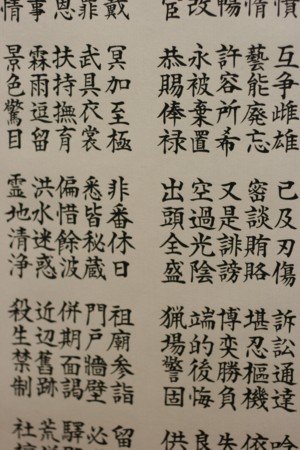 憤 互争雌雄 己及刃傷 訴訟通達 吟
藝能廃忘 密談賄賂 堪忍枢機 依
暢 許容所希 又是誹謗 博奕勝負 失
改 永被棄置 空過光陰 端的後悔 良
恭賜俸禄 出頭全盛 猟場警固 供
戴 冥加至極 非番休日 祖廟参詣 留
罪 武具衣裳 悉皆秘蔵 門戸牆壁 必
思 扶持撫育 偏惜餘波 併期面謁 驛
事 霖雨逗留 洪水迷惑 近辺舊跡 荒
情 景色驚目 霊地清浄 殺生禁制 社